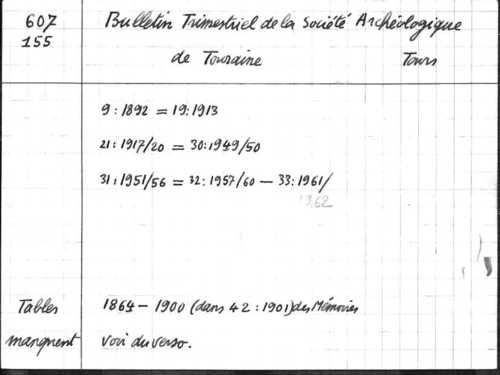 607 Bulletin Trimestriel de la Société Archéologique
155 de Touraine Tours
9 : 1892 = 19 : 1913
21 : 1917/20 = 30 : 1949/50
31 : 1951/56 = 32 : 1957/60 — 33 : 1961/
1962
Tables 1864 — 1900 (dans 42 : 1901) des Mémoires
manquent voir du verso.